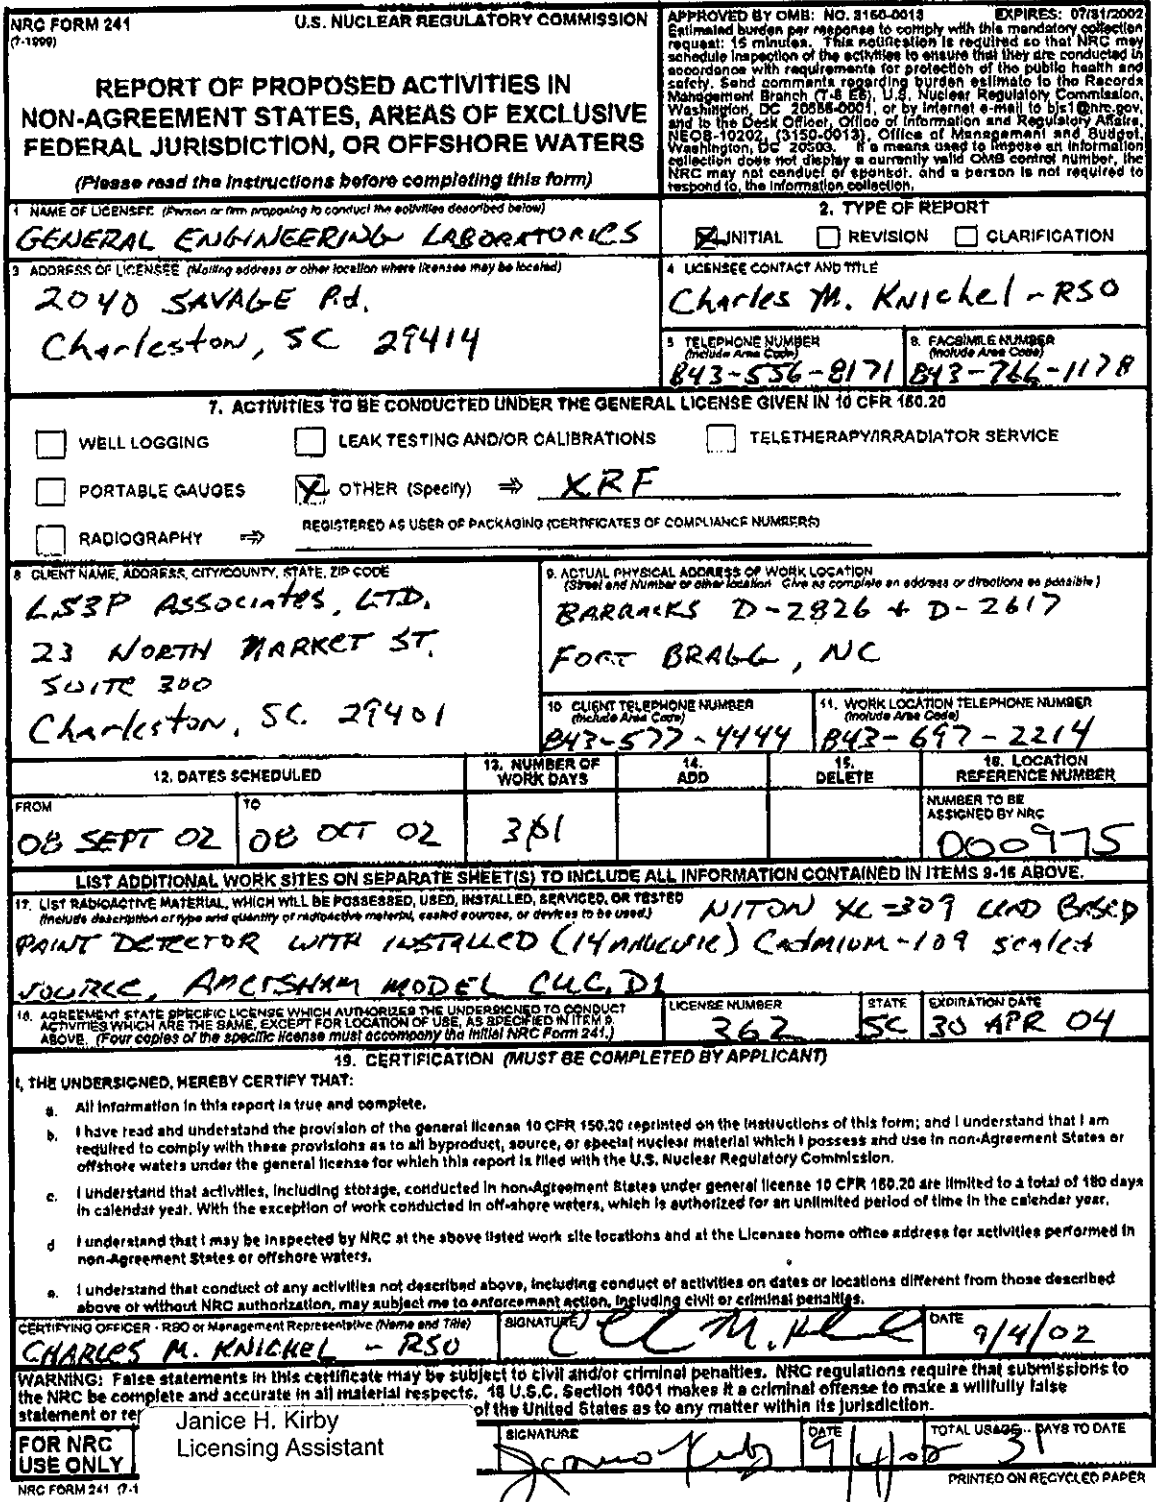 NRC FORM 241
(7-1999)
U.S. NUCLEAR REGULATORY COMMISSION
REPORT OF PROPOSED ACTIVITIES IN
NON-AGREEMENT STATES, AREAS OF EXCLUSIVE
FEDERAL JURISDICTION, OR OFFSHORE WATERS
(Please read the instructions before completing this form)
APPROVED BY OMB: NO. 3150-0013 EXPIRES: 07/31/2002
Estimated burden per response to comply with this mandatory collection
request: 15 minutes. This notification is required so that NRC may
schedule inspection of the activities to ensure that they are conducted in
accordance with requirements for protection of the public health and
safety. Send comments regarding burden estimate to the Records
Management Branch (T-6 E6), U.S. Nuclear Regulatory Commission,
Washington, DC 20555-0001, or by internet e-mail to bjs1@nrc.gov,
and to the Desk Officer, Office of Information and Regulatory Affairs,
NEOB-10202, (3150-0013), Office of Management and Budget,
Washington, DC 20503. If a means used to impose an information
collection does not display a currently valid OMB control number, the
NRC may not conduct or sponsor, and a person is not required to
respond to, the information collection.
1 NAME OF LICENSEE (Person or firm proposing to conduct the activities described below)
GENERAL ENGINEERING LABORATORIES
2. TYPE OF REPORT
INITIAL REVISION CLARIFICATION
3 ADDRESS OF LICENSEE (Mailing address or other location where licensee may be located)
2040 SAVAGE Rd.
Charleston, SC 29414
4 LICENSEE CONTACT AND TITLE
Charles M. Knichel - RSO
5 TELEPHONE NUMBER
(Include Area Code)
843-556-8171
6. FACSIMILE NUMBER
(Include Area Code)
843-766-1178
7. ACTIVITIES TO BE CONDUCTED UNDER THE GENERAL LICENSE GIVEN IN 10 CFR 150.20
WELL LOGGING LEAK TESTING AND/OR CALIBRATIONS TELETHERAPY/IRRADIATOR SERVICE
PORTABLE GAUGES OTHER (Specify) ⇒ XRF
RADIOGRAPHY ⇒ REGISTERED AS USER OF PACKAGING (CERTIFICATES OF COMPLIANCE NUMBERS)
8 CLIENT NAME, ADDRESS, CITY/COUNTY, STATE, ZIP CODE
LS3P Associates, LTD.
23 NORTH MARKET ST.
SUITE 300
Charleston, SC. 29401
9. ACTUAL PHYSICAL ADDRESS OF WORK LOCATION
(Street and Number or other location Give as complete an address or directions as possible)
BARRACKS D-2826 + D-2617
FORT BRAGG, NC
10 CLIENT TELEPHONE NUMBER
(Include Area Code)
843-577-4444
11. WORK LOCATION TELEPHONE NUMBER
(Include Area Code)
843-697-2214
12. DATES SCHEDULED
13. NUMBER OF
WORK DAYS
14.
ADD
15.
DELETE
16. LOCATION
REFERENCE NUMBER
FROM
08 SEPT 02
TO
08 OCT 02
31
NUMBER TO BE
ASSIGNED BY NRC
000975
LIST ADDITIONAL WORK SITES ON SEPARATE SHEET(S) TO INCLUDE ALL INFORMATION CONTAINED IN ITEMS 9-16 ABOVE.
17. LIST RADIOACTIVE MATERIAL, WHICH WILL BE POSSESSED, USED, INSTALLED, SERVICED, OR TESTED
(Include description of type and quantity of radioactive material, sealed sources, or devices to be used.)
NITON XL-309 LEAD BASED
PAINT DETECTOR WITH INSTALLED (14 ) Cadmium-109 sealed
SOURCE, AMERSHAM MODEL CUC.D1
18. AGREEMENT STATE SPECIFIC LICENSE WHICH AUTHORIZES THE UNDERSIGNED TO CONDUCT
ACTIVITIES WHICH ARE THE SAME, EXCEPT FOR LOCATION OF USE, AS SPECIFIED IN ITEM 9,
ABOVE. (Four copies of the specific license must accompany the initial NRC Form 241.)
LICENSE NUMBER
362
STATE
SC
EXPIRATION DATE
30 APR 04
19. CERTIFICATION (MUST BE COMPLETED BY APPLICANT)
I, THE UNDERSIGNED, HEREBY CERTIFY THAT:
a. All information in this report is true and complete.
b. I have read and understand the provision of the general license 10 CFR 150.20 reprinted on the instructions of this form; and I understand that I am
required to comply with these provisions as to all byproduct, source, or special nuclear material which I possess and use in non-Agreement States or
offshore waters under the general license for which this report is filed with the U.S. Nuclear Regulatory Commission.
c. I understand that activities, including storage, conducted in non-Agreement States under general license 10 CFR 150.20 are limited to a total of 180 days
in calendar year. With the exception of work conducted in off-shore waters, which is authorized for an unlimited period of time in the calendar year.
d I understand that I may be inspected by NRC at the above listed work site locations and at the Licensee home office address for activities performed in
non-Agreement States or offshore waters.
e. I understand that conduct of any activities not described above, including conduct of activities on dates or locations different from those described
above or without NRC authorization, may subject me to enforcement action, including civil or criminal penalties.
CERTIFYING OFFICER - RSO or Management Representative (Name and Title)
CHARLES M. KNICHEL - RSO
SIGNATURE
DATE
9/4/02
WARNING: False statements in this certificate may be subject to civil and/or criminal penalties. NRC regulations require that submissions to
the NRC be complete and accurate in all material respects. 18 U.S.C. Section 1001 makes it a criminal offense to make a willfully false
statement or rep of the United States as to any matter within its jurisdiction.
FOR NRC
USE ONLY
Janice H. Kirby
Licensing Assistant
SIGNATURE
DATE
9/4/02
TOTAL USAGE - DAYS TO DATE
31
NRC FORM 241 (7-1
PRINTED ON RECYCLED PAPER